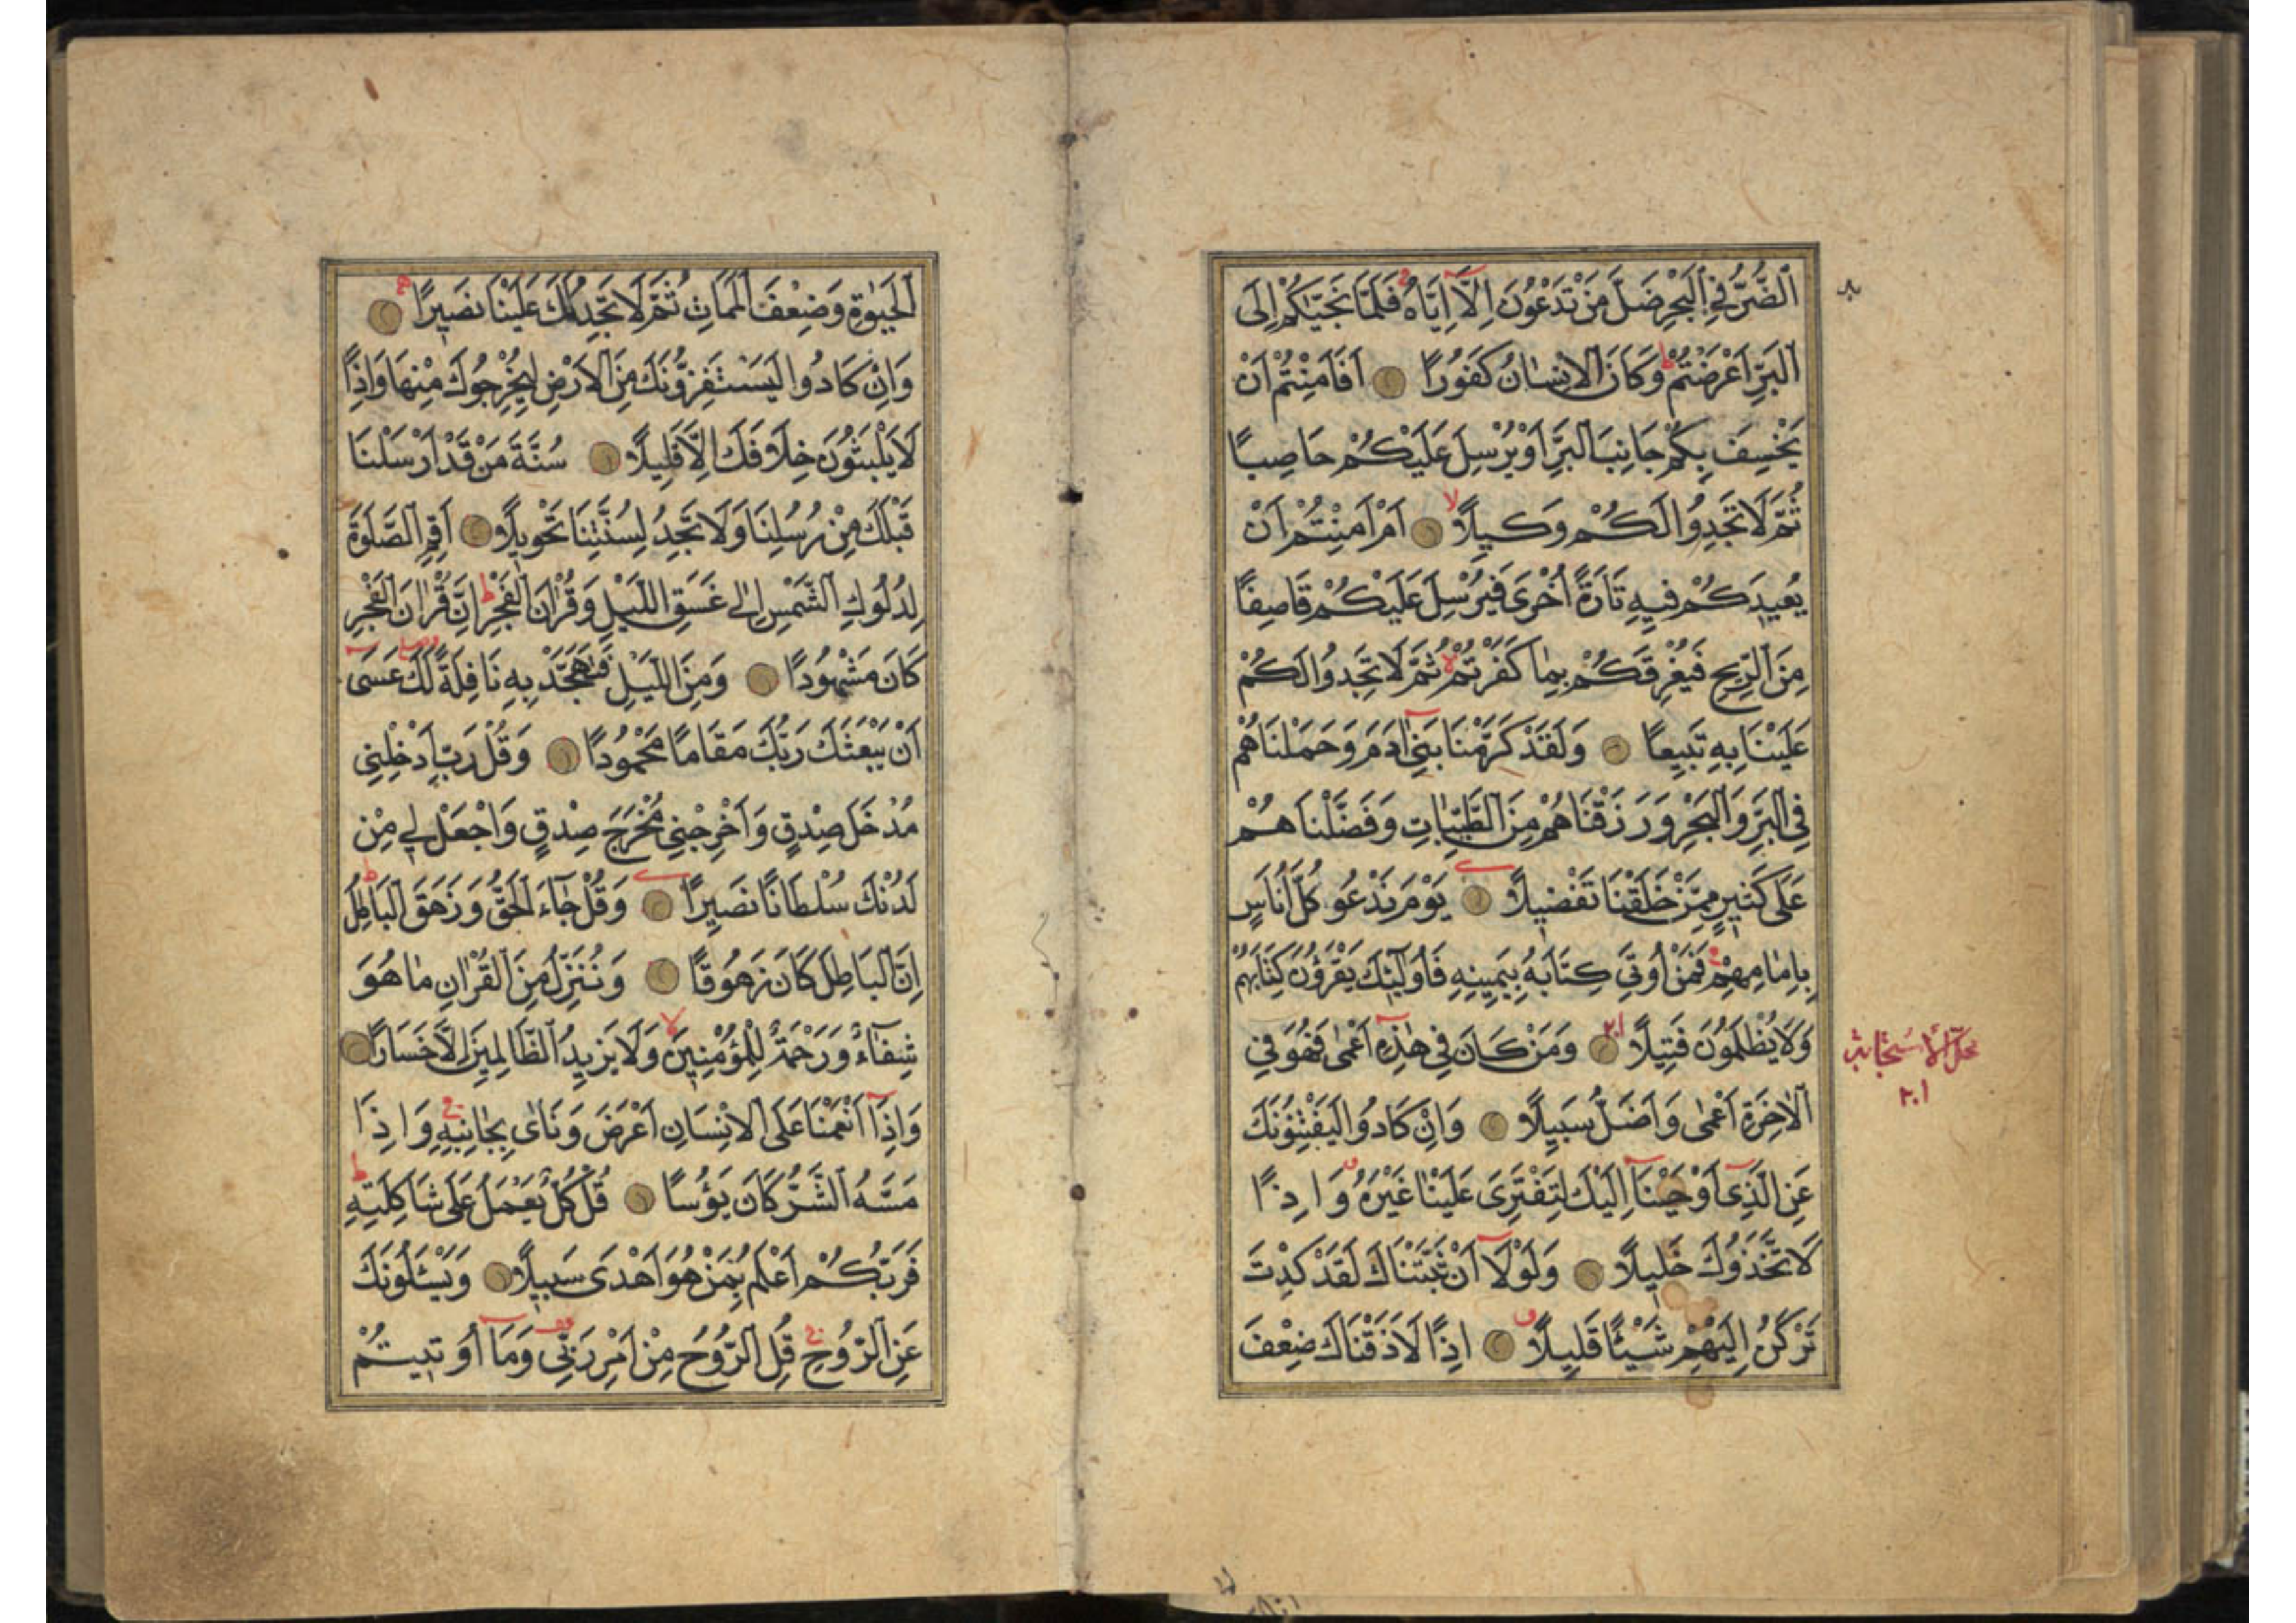 اَلضُّرُّ فِي الْبَحْرِ ضَلَّ مَنْ تَدْعُونَ اِلَّٓا اِيَّاهُ فَلَمَّا نَجّٰيكُمْ اِلَى
الْبَرِّ اَعْرَضْتُمْ وَكَانَ الْاِنْسَانُ كَفُورًا اَفَاَمِنْتُمْ اَنْ
يَخْسِفَ بِكُمْ جَانِبَ الْبَرِّ اَوْ يُرْسِلَ عَلَيْكُمْ حَاصِبًا
ثُمَّ لَا تَجِدُوا لَكُمْ وَكِيلًا اَمْ اَمِنْتُمْ اَنْ
يُعِيدَكُمْ فِيهِ تَارَةً اُخْرٰى فَيُرْسِلَ عَلَيْكُمْ قَاصِفًا
مِنَ الرِّيحِ فَيُغْرِقَكُمْ بِمَا كَفَرْتُمْ ثُمَّ لَا تَجِدُوا لَكُمْ
عَلَيْنَا بِهِ تَبِيعًا وَلَقَدْ كَرَّمْنَا بَنِٓي اٰدَمَ وَحَمَلْنَاهُمْ
فِي الْبَرِّ وَالْبَحْرِ وَرَزَقْنَاهُمْ مِنَ الطَّيِّبَاتِ وَفَضَّلْنَاهُمْ
عَلٰى كَثِيرٍ مِمَّنْ خَلَقْنَا تَفْضِيلًا يَوْمَ نَدْعُو كُلَّ اُنَاسٍ
بِاِمَامِهِمْ فَمَنْ اُوتِيَ كِتَابَهُ بِيَمِينِهِ فَاُولٰٓئِكَ يَقْرَؤُنَ كِتَابَهُمْ
وَلَا يُظْلَمُونَ فَتِيلًا وَمَنْ كَانَ فِي هٰذِهِٓ اَعْمٰى فَهُوَ فِي
الْاٰخِرَةِ اَعْمٰى وَاَضَلُّ سَبِيلًا وَاِنْ كَادُوا لَيَفْتِنُونَكَ
عَنِ الَّذِٓي اَوْحَيْنَٓا اِلَيْكَ لِتَفْتَرِيَ عَلَيْنَا غَيْرَهُ وَاِذًا
لَاتَّخَذُوكَ خَلِيلًا وَلَوْلَٓا اَنْ ثَبَّتْنَاكَ لَقَدْ كِدْتَ
تَرْكَنُ اِلَيْهِمْ شَيْئًا قَلِيلًا اِذًا لَاَذَقْنَاكَ ضِعْفَ
الْحَيٰوةِ وَضِعْفَ الْمَمَاتِ ثُمَّ لَا تَجِدُ لَكَ عَلَيْنَا نَصِيرًا
وَاِنْ كَادُوا لَيَسْتَفِزُّونَكَ مِنَ الْاَرْضِ لِيُخْرِجُوكَ مِنْهَا وَاِذًا
لَا يَلْبَثُونَ خِلَافَكَ اِلَّا قَلِيلًا سُنَّةَ مَنْ قَدْ اَرْسَلْنَا
قَبْلَكَ مِنْ رُسُلِنَا وَلَا تَجِدُ لِسُنَّتِنَا تَحْوِيلًا اَقِمِ الصَّلٰوةَ
لِدُلُوكِ الشَّمْسِ اِلٰى غَسَقِ اللَّيْلِ وَقُرْاٰنَ الْفَجْرِ اِنَّ قُرْاٰنَ الْفَجْرِ
كَانَ مَشْهُودًا وَمِنَ اللَّيْلِ فَتَهَجَّدْ بِهِ نَافِلَةً لَكَ عَسٰٓى
اَنْ يَبْعَثَكَ رَبُّكَ مَقَامًا مَحْمُودًا وَقُلْ رَبِّ اَدْخِلْنِي
مُدْخَلَ صِدْقٍ وَاَخْرِجْنِي مُخْرَجَ صِدْقٍ وَاجْعَلْ لِي مِنْ
لَدُنْكَ سُلْطَانًا نَصِيرًا وَقُلْ جَٓاءَ الْحَقُّ وَزَهَقَ الْبَاطِلُ
اِنَّ الْبَاطِلَ كَانَ زَهُوقًا وَنُنَزِّلُ مِنَ الْقُرْاٰنِ مَا هُوَ
شِفَٓاءٌ وَرَحْمَةٌ لِلْمُؤْمِنِينَ وَلَا يَزِيدُ الظَّالِمِينَ اِلَّا خَسَارًا
وَاِذَٓا اَنْعَمْنَا عَلَى الْاِنْسَانِ اَعْرَضَ وَنَاٰى بِجَانِبِهِ وَاِذَا
مَسَّهُ الشَّرُّ كَانَ يَؤُسًا قُلْ كُلٌّ يَعْمَلُ عَلٰى شَاكِلَتِهِ
فَرَبُّكُمْ اَعْلَمُ بِمَنْ هُوَ اَهْدٰى سَبِيلًا وَيَسْـَٔلُونَكَ
عَنِ الرُّوحِ قُلِ الرُّوحُ مِنْ اَمْرِ رَبِّي وَمَٓا اُوتِيتُمْ